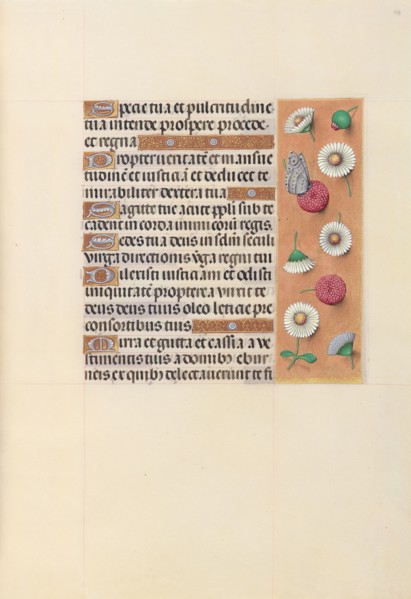 Specie tua et pulcritudine
tua intende prospere procede
et regna
Propter veritatē et mansue
tudinē et iusticiā et deducet te
mirabiliter dextera tua
Sagitte tue acute ppli sub te
cadent in corda inimicorū regis.
Sedes tua deus in sclm seculi
virga directionis v̄ga regni tui
Dilexisti iusticiam et odisti
iniquitatē propterea vnxit te
deus deus tuus oleo leticie pre
consortibus tuis
Mirra et gutta et cassia a ve
stimentis tuis a domib⁹ ebur
neis ex quib⁹ delectauerunt te fi